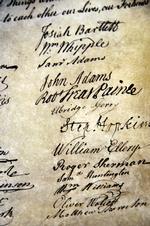 to each other our Lives, our Fortunes
Josiah Bartlett
Wm Whipple
Saml Adams
John Adams
Robt Treat Paine
Elbridge Gerry
Step. Hopkins
William Ellery
Roger Sherman
Saml Huntington
Wm Williams
Oliver Wolcott
Matthew Thornton